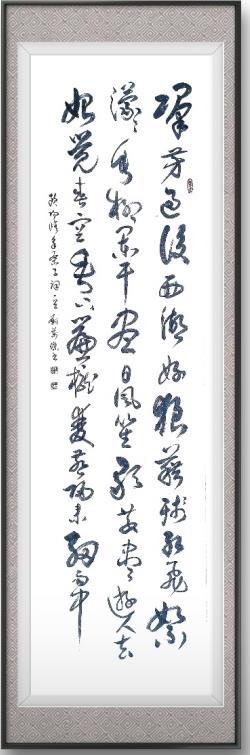 群芳过后西湖好狼藉残红飞絮
濛濛垂柳阑干尽日风笙歌散尽游人去
始觉春空垂下帘栊双燕归来细雨中